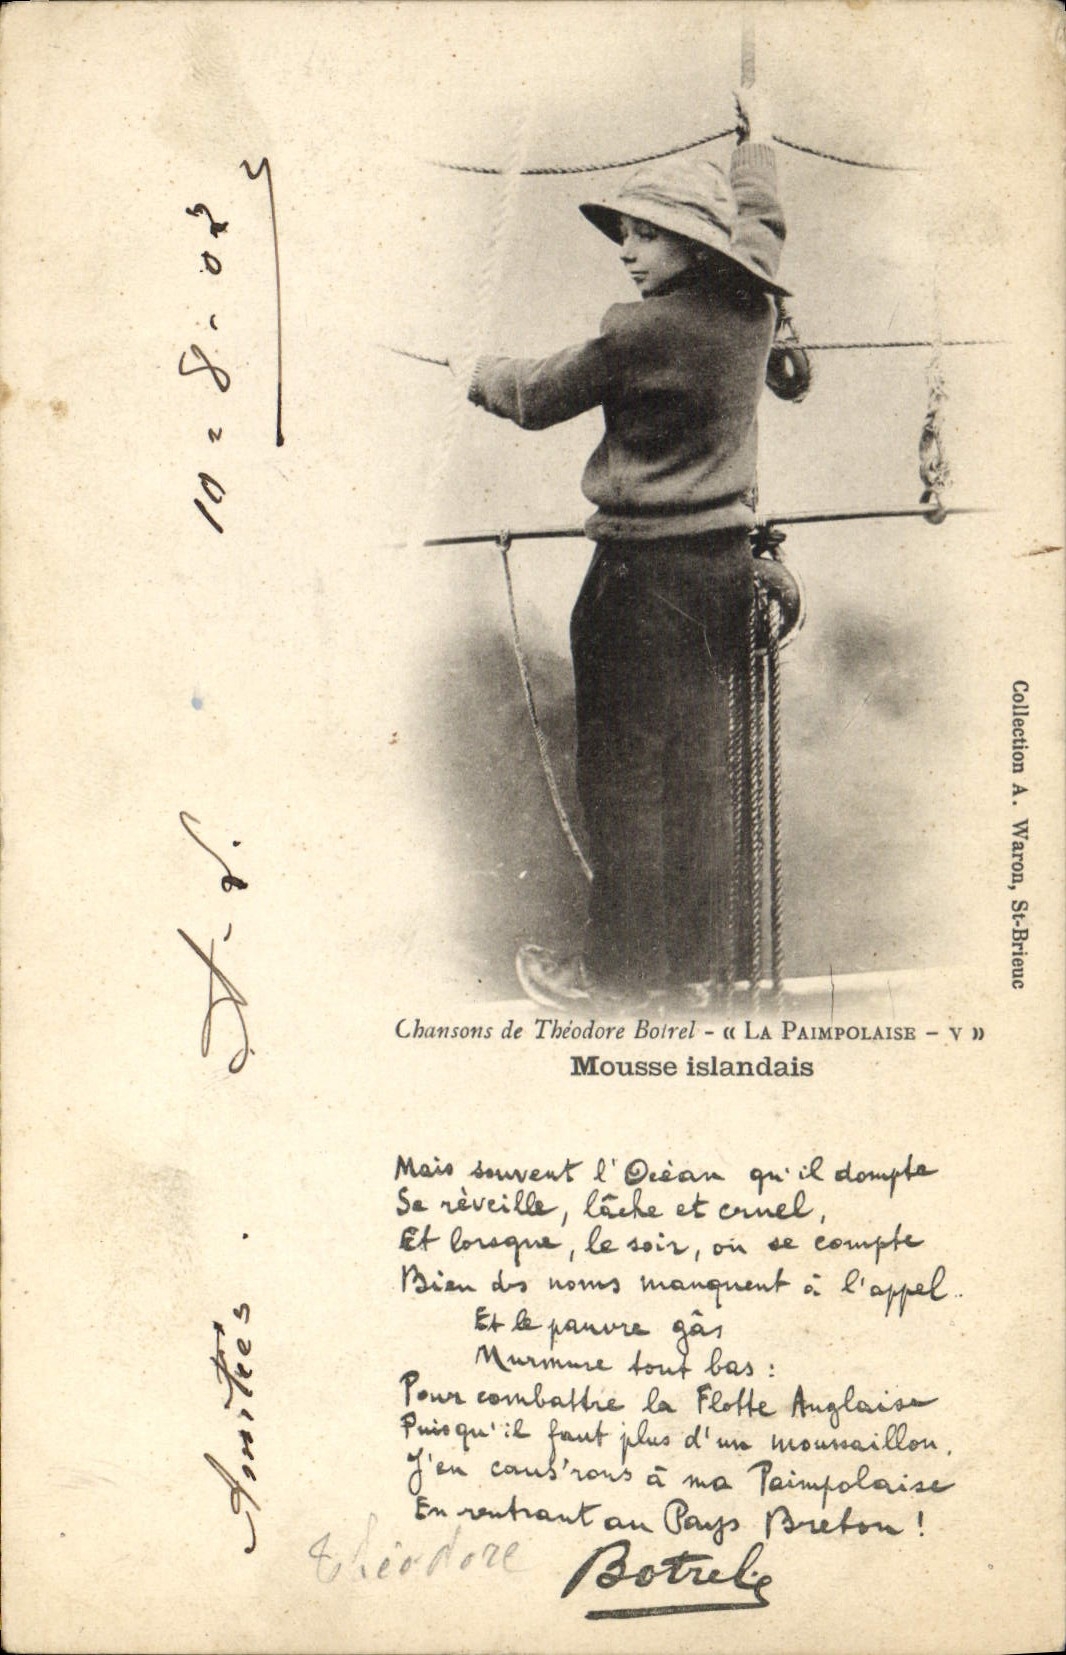 10 = 8 - 02
Amitiés.
Collection A. Waron, St-Brieuc
Chansons de Théodore Botrel - « LA PAIMPOLAISE - V »
Mousse islandais
Mais souvent l'Océan qu'il dompte
Se réveille, lâche et cruel,
Et lorsque, le soir, on se compte
Bien des noms manquent à l'appel..
Et le pauvre gâs
Murmure tout bas :
Pour combattre la Flotte Anglaise
Puisqu'il faut plus d'un moussaillon,
J'en caus'rons à ma Paimpolaise
En rentrant au Pays Breton !
Théodore
Botrel